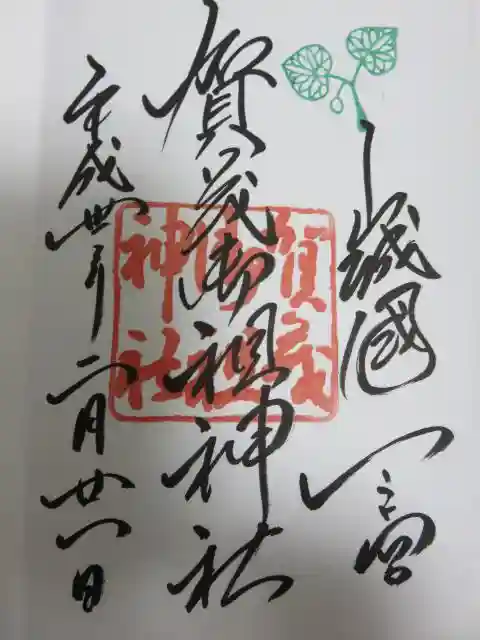 山城國 一之宮
賀茂御祖神社
平成丗年二月廿一日
賀茂
御祖
神社